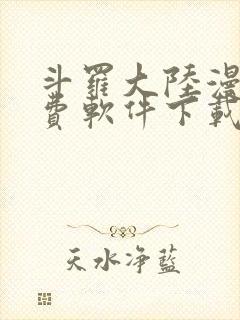 斗羅大陸漫
費軟件下載
天水净藍